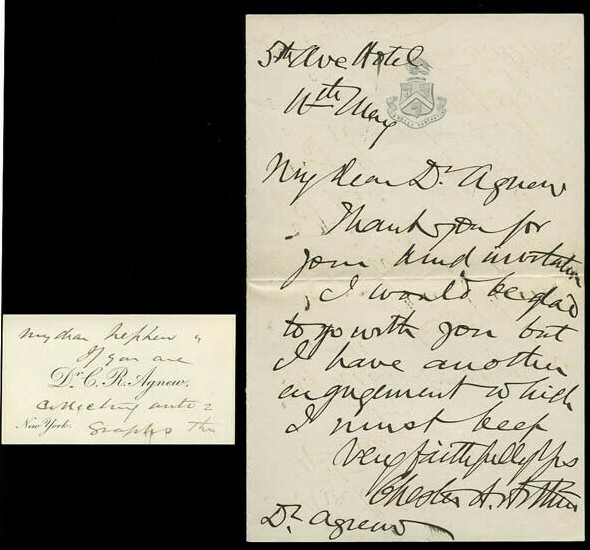 5th Ave Hotel
11th May
My dear Dr Agnew
Thank you for
your kind invitation
I would be glad
to go with you but
I have another
engagement which
I must keep
Very faithfully Yrs
Chester A. Arthur
Dr Agnew
My dear Nephew
If you are
Dr. C. R. Agnew.
collecting auto=
New York.
graphs the